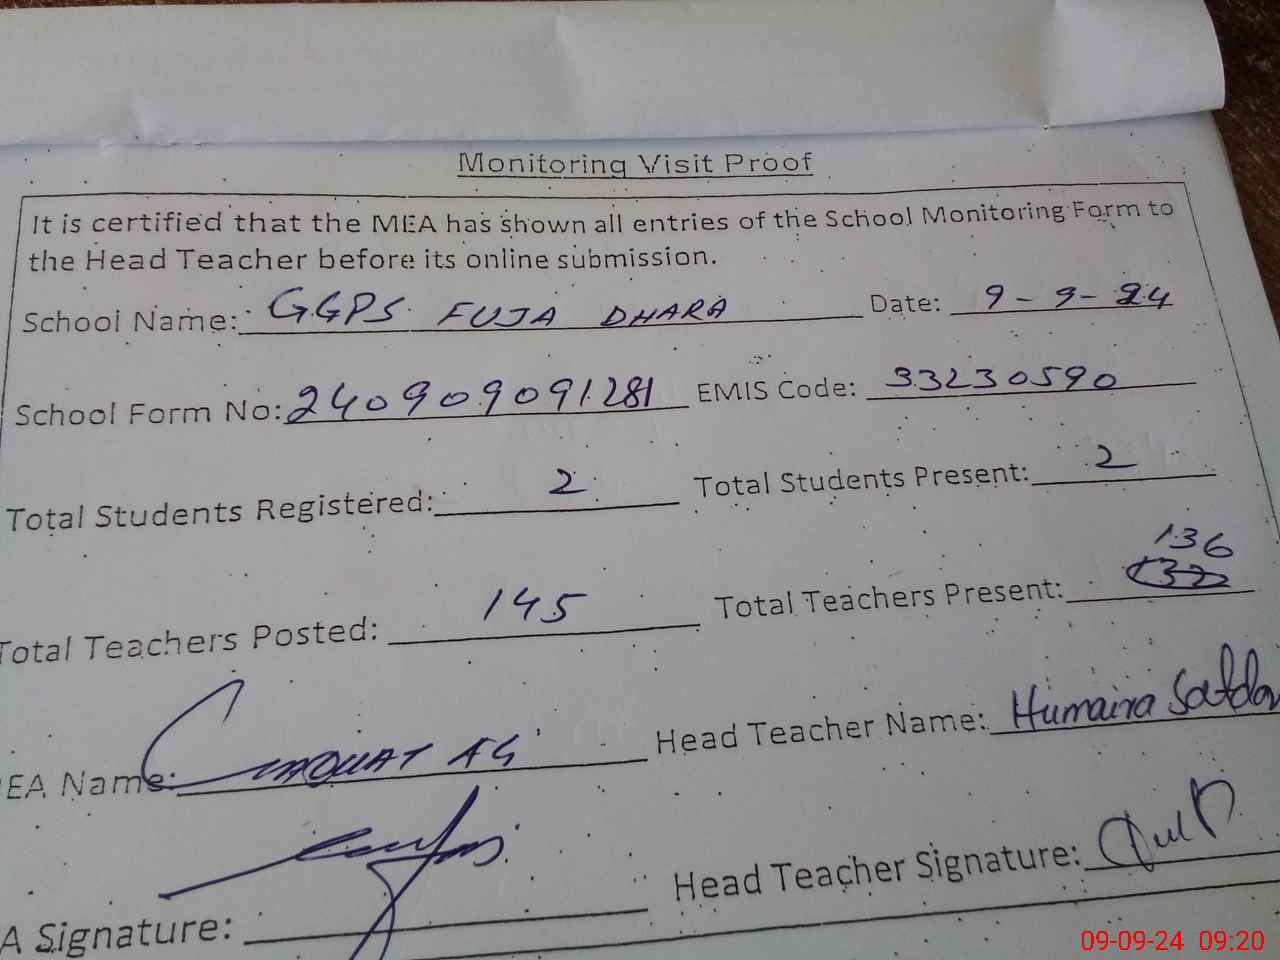 Monitoring Visit Proof
It is certified that the MEA has shown all entries of the School Monitoring Form to
the Head Teacher before its online submission.
School Name: GGPS FUJA DHARA Date: 9-9-24
School Form No: 240909091281 EMIS Code: 33230590
Total Students Registered: 2 Total Students Present: 2
136
Total Teachers Posted: 145 Total Teachers Present: 132
EA Name: LIAQUAT Head Teacher Name: Humaira Safdar
A Signature: Head Teacher Signature:
09-09-24 09:20